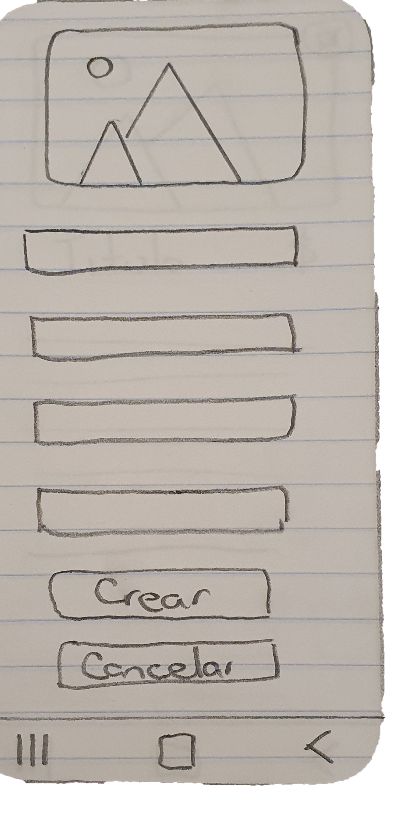 Crear
Cancelar